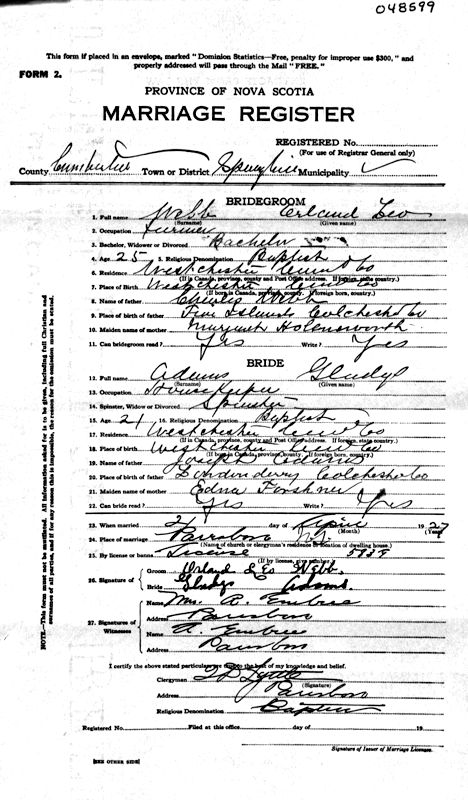 048599
This form if placed in an envelope, marked "Dominion Statistics—Free, penalty for improper use $300," and
properly addressed will pass through the Mail "FREE."
FORM 2.
PROVINCE OF NOVA SCOTIA
MARRIAGE REGISTER
REGISTERED No.
(For use of Registrar General only)
County Cumberland Town or District Springhill Municipality
BRIDEGROOM
1. Full name Webb Erland Leo
(Surname) (Given name)
2. Occupation Farmer
3. Bachelor, Widower or Divorced Bachelor
4. Age 25 5. Religious Denomination Baptist
6. Residence Westchester Cumb Co
(If in Canada, province, county and Post Office address. If foreign, state country.)
7. Place of Birth Westchester Cumb Co
(If born in Canada, province, county. If foreign born, country.)
8. Name of father Charles Webb
9. Place of birth of father Five Islands Colchester Co
10. Maiden name of mother Holensworth
11. Can bridegroom read? Yes Write? Yes
BRIDE
12. Full name Adams Gladys
(Surname) (Given name)
13. Occupation Housekeeper
14. Spinster, Widow or Divorced Spinster
15. Age 21 16. Religious Denomination Baptist
17. Residence Westchester Cumb Co
(If in Canada, province, county and Post Office address. If foreign, state country.)
18. Place of birth Westchester Cumb Co
(If born in Canada, province, county. If foreign born, country.)
19. Name of father Joseph Adams
20. Place of birth of father Londonderry Colchester Co
21. Maiden name of mother Edna Forshner
22. Can bride read? Yes Write? Yes
23. When married 21 day of April 1927
(Month) (Year)
24. Place of marriage Parrsboro N.S.
(Name of church or clergyman's residence or location of dwelling house.)
25. By license or banns License 5838
(If by license, give number)
26. Signature of Groom Webb
Bride Gladys Adams
27. Signatures of Witnesses Name Mrs. A. Embree
Address Parrsboro
Name A. Embree
Address Parrsboro
I certify the above stated particulars are true to the best of my knowledge and belief.
Clergyman
(Signature)
Address Parrsboro
Religious Denomination Baptist
Registered No. Filed at this office day of 19
Signature of Issuer of Marriage Licenses.
[SEE OTHER SIDE]
NOTE—This form must not be mutilated. All information asked for is to be given, including full Christian and
surnames of all parties, and if for any reason this is impossible, the reason for the omission must be stated.